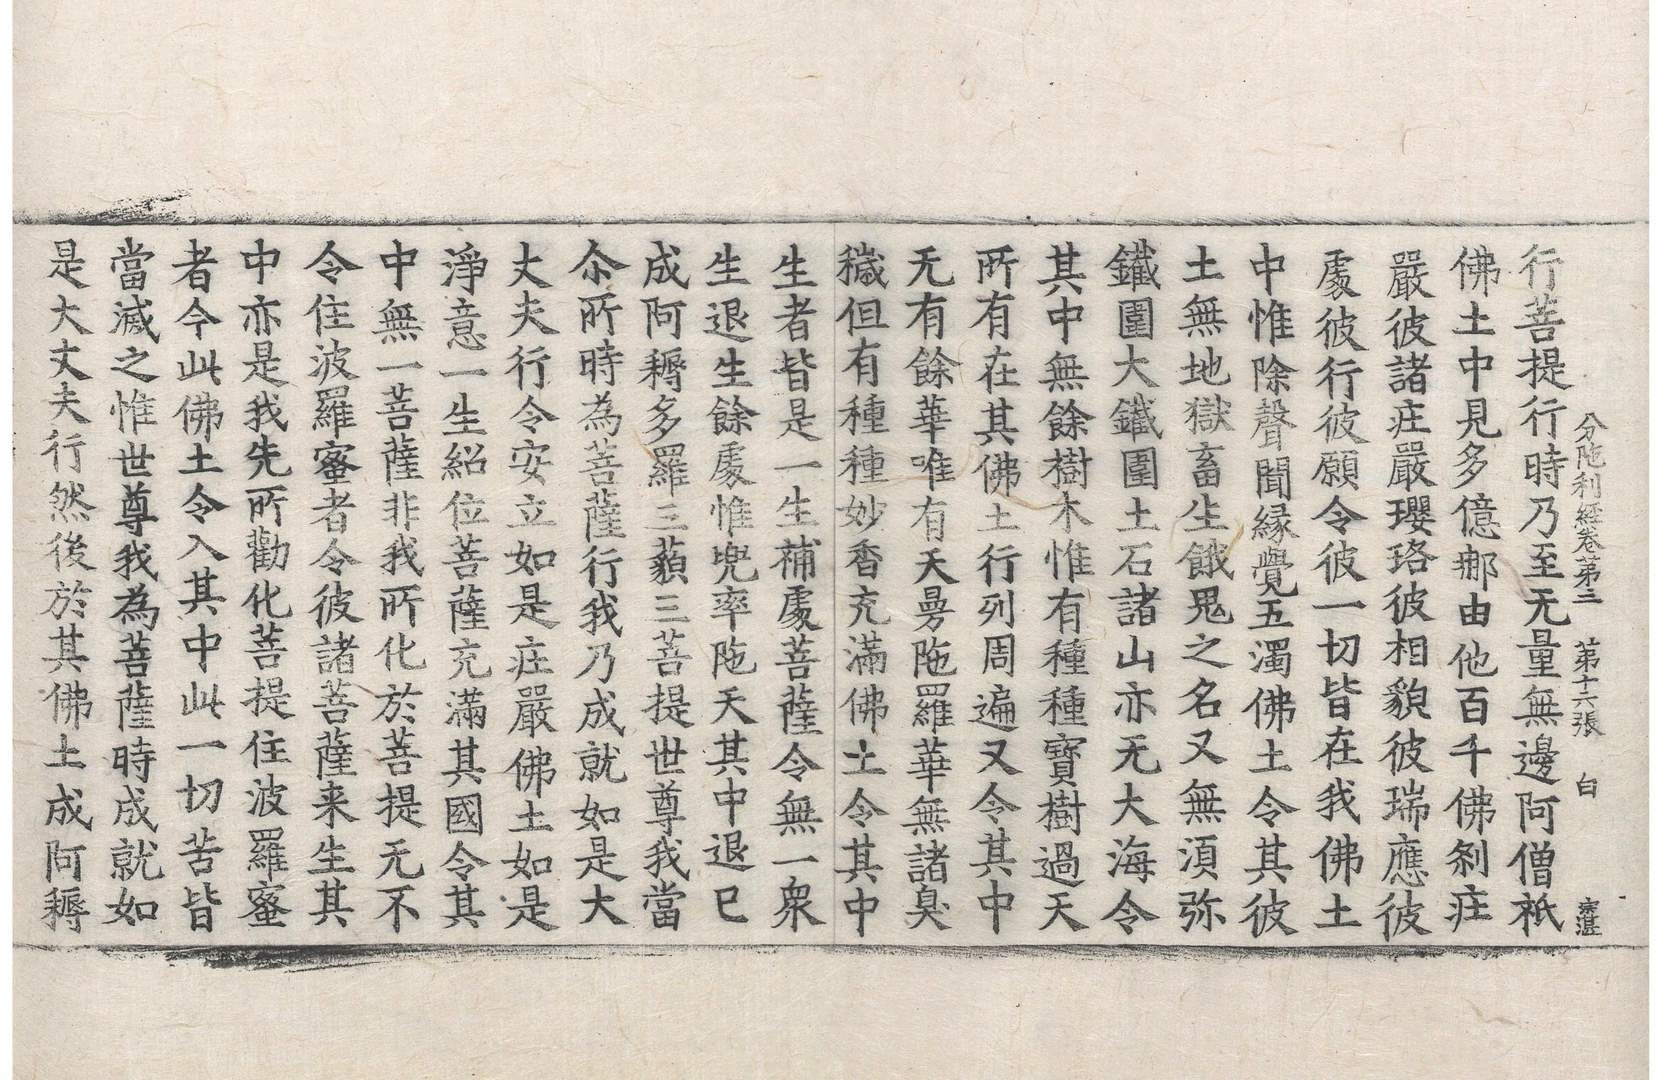 分陁利經卷第二　第十六張　白
行菩提行時乃至无量無邊阿僧祇
佛土中見多億𨚗由他百千佛刹庄
嚴彼諸庄嚴瓔珞彼相貌彼瑞應彼
處彼行彼願令彼一切皆在我佛土
中惟除聲聞縁覺五濁佛土令其彼
土無地獄畜生餓鬼之名又無湏弥
鐵圍大鐵圍土石諸山亦无大海令
其中無餘樹木惟有種種寶樹過天
所有在其佛土行列周遍又令其中
无有餘華唯有天曼陁羅華無諸臭
穢但有種種妙香充滿佛土令其中
生者皆是一生補處菩薩令無一衆
生退生餘處惟兜率陁天其中退已
成阿耨多羅三藐三菩提世尊我當
尒所時為菩薩行我乃成就如是大
丈夫行令安立如是庄嚴佛土如是
淨意一生紹位菩薩充滿其國令其
中無一菩薩非我所化於菩提无不
令住波羅蜜者令彼諸菩薩来生其
中亦是我先所勸化菩提住波羅蜜
者今此佛土令入其中此一切苦皆
當滅之惟世尊我為菩薩時成就如
是大丈夫行然後於其佛土成阿耨